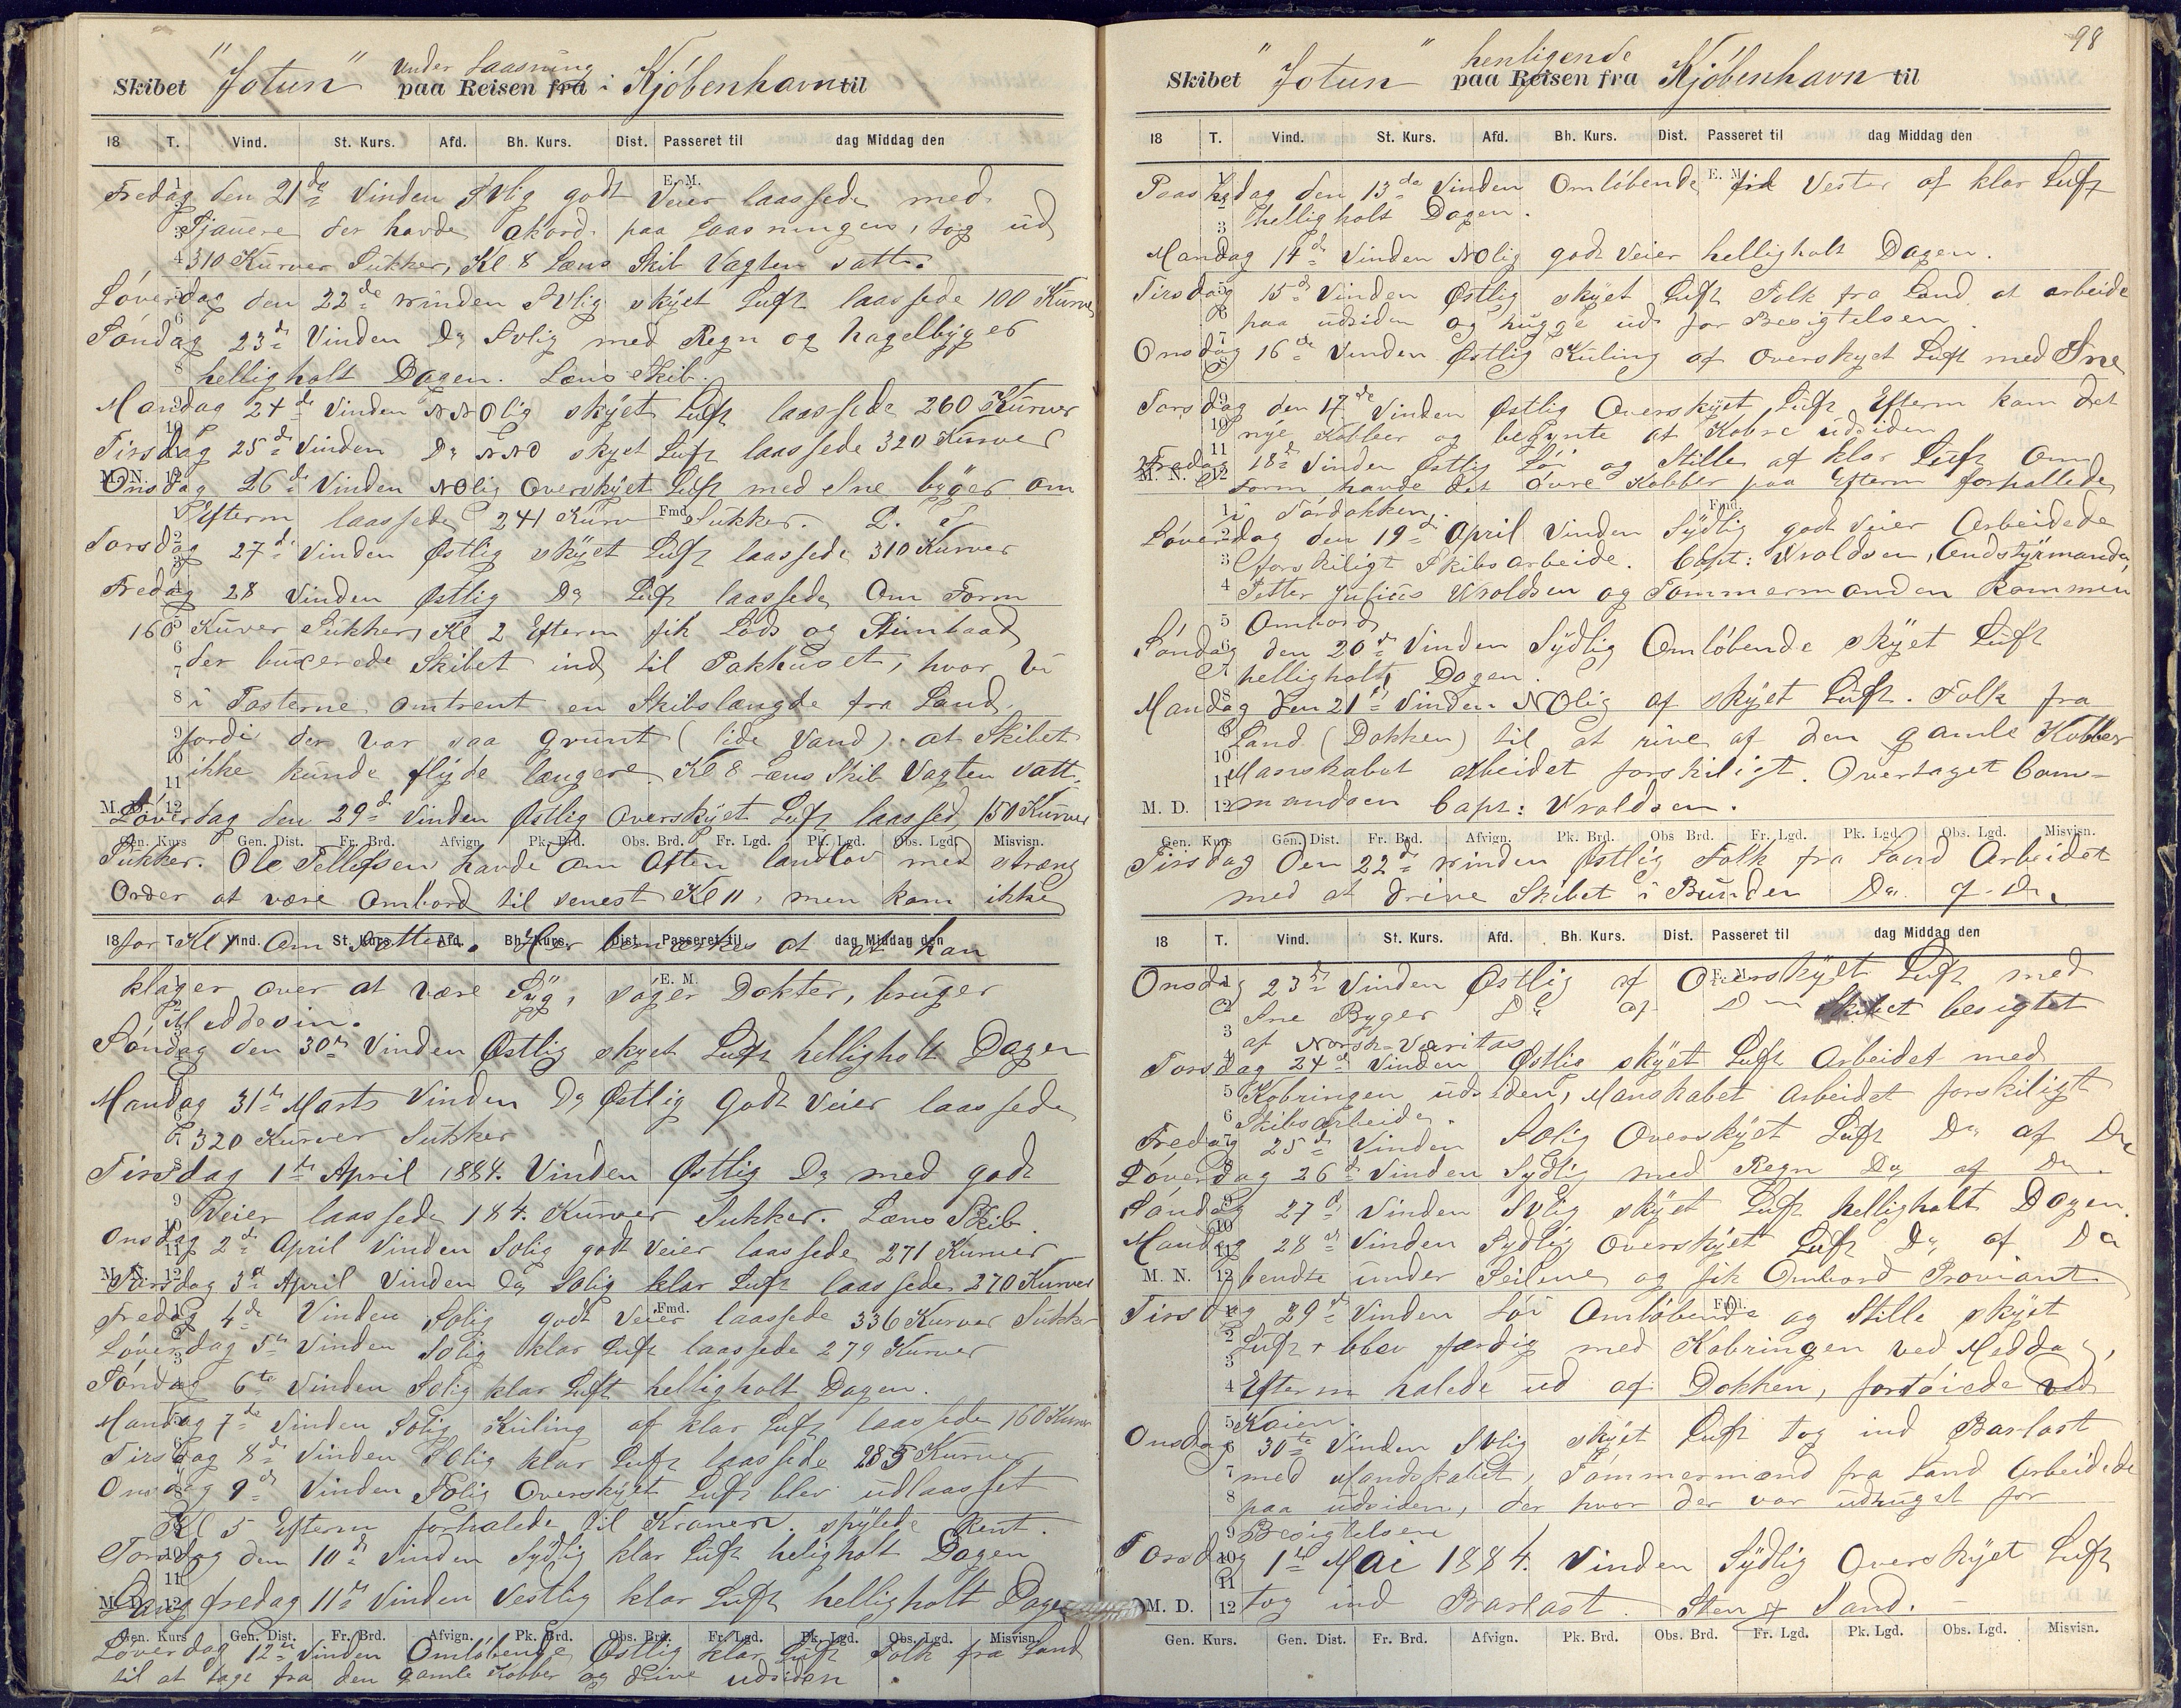 Skibet "Jotun" under Laasning paa Reisen fra i Kjöbenhavn til
18 T. Vind. St. Kurs. Afd. Bh. Kurs. Dist. Passeret til dag Middag den
Fredag den 21de Vinden SVlig godt Veier laassede med
Sjauere der havde akord paa Laasningen, tog ud
310 Kurver Sukker, Kl 8 Læns Skib Vagten satt.
Löverdag den 22de Vinden SVlig skÿet Luft laassede 100 Kurve
Söndag 23de Vinden Do SVlig med Regn og hagelbÿger
helligholt Dagen. Læns Skib.
Mandag 24de Vinden NNOlig skÿet Luft laassede 260 Kurver
Tirsdag 25de Vinden Do NNO skyet Luft laassede 320 Kurver
Onsdag 26de Vinden NOlig Overskÿet Luft med Sne bÿger om
Efterm laassede 241 Kurv Sukker. L. S
Torsdag 27de Vinden Östlig skÿet Luft laassede 310 Kurver
Fredag 28 Vinden Östlig Do Luft laassede Om Form
160 Kurver Sukker, Kl 2 Efterm fik Lods og Stimbaad
der buxerede Skibet ind til Pakhuset, hvor vi
i Tosterne omtrent en Skibslængde fra Land
fordi der var saa grunt (lide Vand) at Skibet
ikke kunde flÿde længere. Kl 8 Læns Skib Vagten satt.
Löverdag den 29de Vinden Östlig Overskÿet Luft laassed 150 Kurver
Gen. Kurs Gen. Dist. Fr. Brd. Afvign. Pk. Brd. Obs. Brd. Fr. Lgd. Pk. Lgd. Obs. Lgd. Misvisn.
Sukker. Ole Tellefsen havde om Aften landlov med stræng
Order at være Ombord til senest Kl 11, men kom ikke
18 T. Vind. St. Kurs. Afd. Bh. Kurs. Dist. Passeret til dag Middag den
for Kl 1 Om Natten. Her bemærkes at at han
klager over at være Sÿg, söger Dokter, bruger
Meddesin.
Söndag den 30te Vinden Östlig skyet Luft helligholt Dagen
Mandag 31te Marts Vinden Do Östlig Godt Veier laassede
320 Kurver Sukker
Tirsdag 1te April 1884. Vinden Östlig Do med godt
Veier laassede 184. Kurver Sukker. Læns Skib.
Onsdag 2de April Vinden SOlig godt Veier laassede 271 Kurver
Torsdag 3de April Vinden Do SOlig klar Luft laassede 270 Kurver
Fredag 4de Vinden SOlig godt Veier laassede 336 Kurver Sukker
Löverdag 5te Vinden SOlig klar Luft laassede 279 Kurver
Söndag 6te Vinden SOlig klar Luft helligholt Dagen.
Mandag 7de Vinden SOlig Kuling af klar Luft laassede 160 Kurv
Tirsdag 8de Vinden SOlig klar Luft laassede 285 Kurver
Onsdag 9de Vinden SOlig Overskÿet Luft blev udlaasset
Kl 5 Efterm forhalede til Kranen. spÿlede Rent.
Torsdag den 10de Vinden Sÿdlig klar Luft heligholt Dagen
Lang fredag 11te Vinden Vestlig klar Luft helligholt Dagen
Gen. Kurs Gen. Dist. Fr. Brd. Afvign. Pk. Brd. Obs. Brd. Fr. Lgd. Pk. Lgd. Obs. Lgd. Misvisn.
Löverdag 12te Vinden Omlöbende Östlig klar Luft Folk fra Land
til at tage fra den gamle Kobber og drive udsiden.
98
Skibet "Jotun" henligende paa Reisen fra Kjöbenhavn til
18 T. Vind. St. Kurs. Afd. Bh. Kurs. Dist. Passeret til dag Middag den
Paaskedag den 13de Vinden Omlöbende Vester af klar Luft
helligholt Dagen.
Mandag 14de Vinden NOlig godt Veier helligholt Dagen.
Tirsdag 15de Vinden Östlig skÿet Luft Folk fra Land at arbeide
paa udsiden og hugge ud for Besigtelsen.
Onsdag 16de Vinden Östlig Kuling af Overskyet Luft med Sne
Torsdag den 17de Vinden Östlig Overskÿet Luft Efterm kom det
nÿe Kobber og begynte at Kobre udsiden
Fredag 18de Vinden Östlig Lör og Stille af klar Luft Om
Form havde det övre Kobber paa Efterm forhallede
i Tördokken.
Löverdag den 19de April Vinden Sÿdlig godt Veier Arbeidede
forskiligt Skibsarbeide. Capt: Wroldsen, Andstÿrmanden
Petter Julius Wroldsen og Tömmermanden kommen
Ombord
Söndag den 20de Vinden Sÿdlig Omlöbende skÿet Luft
helligholt Dagen.
Mandag den 21de Vinden NOlig af skÿet Luft. Folk fra
Land (Dokken) til at rive af den gamle Kobber
Manskabet arbeidet forskiligt. Overtaget Com-
M. D. 12 mandoen Capt: Wroldsen.
Gen. Kurs Gen. Dist. Fr. Brd. Afvign. Pk. Brd. Obs Brd. Fr. Lgd. Pk. Lgd. Obs. Lgd. Misvisn.
Tirsdag den 22de Vinden Östlig Folk fra Land Arbeidet
med at drive Skibet i Bunden Do af Do
18 T. Vind. St. Kurs. Afd. Bh. Kurs. Dist. Passeret til dag Middag den
Onsdag 23de Vinden Östlig af Overskÿet Luft med
Sne Byger Do af Do Skibet besigtet
af Norsk-Væritas
Torsdag 24de Vinden Östlig skÿet Luft Arbeidet med
Kobringen udsiden, Manskabet Arbeidet forskiligt
Skibsarbeide.
Fredag 25de Vinden SOlig Overskÿet Luft Do af Do
Löverdag 26de Vinden Sydlig med Regn Do af Do.
Söndag 27de Vinden SVlig skÿet Luft helligholt Dagen.
Mandag 28de Vinden Sydlig Overskÿet Luft Do af Do
M. N. 12 bendte under Seilene og fik Ombord Proviant
Tirsdag 29de Vinden Lör Omlöbende og Stille skÿet
Luft blev færdig med Kobringen ved Meddag,
Efterm halede ud af Dokken, fortöiede ved
Kaien.
Onsdag 30te Vinden SVlig skÿet Luft tog ind Barlast
med Mandskabet, Tömmermænd fra Land Arbeidede
paa udsiden, der hvor der var udhuget for
Besigtelsen
Torsdag 1te Mai 1884. Vinden Sÿdlig Overskÿet Luft
M. D. 12 tog ind Barlast. Sten & Sand.
Gen. Kurs. Gen. Dist. Fr. Brd. Afvign. Pk. Brd. Obs. Brd. Fr. Lgd. Pk. Lgd. Obs. Lgd. Misvisn.